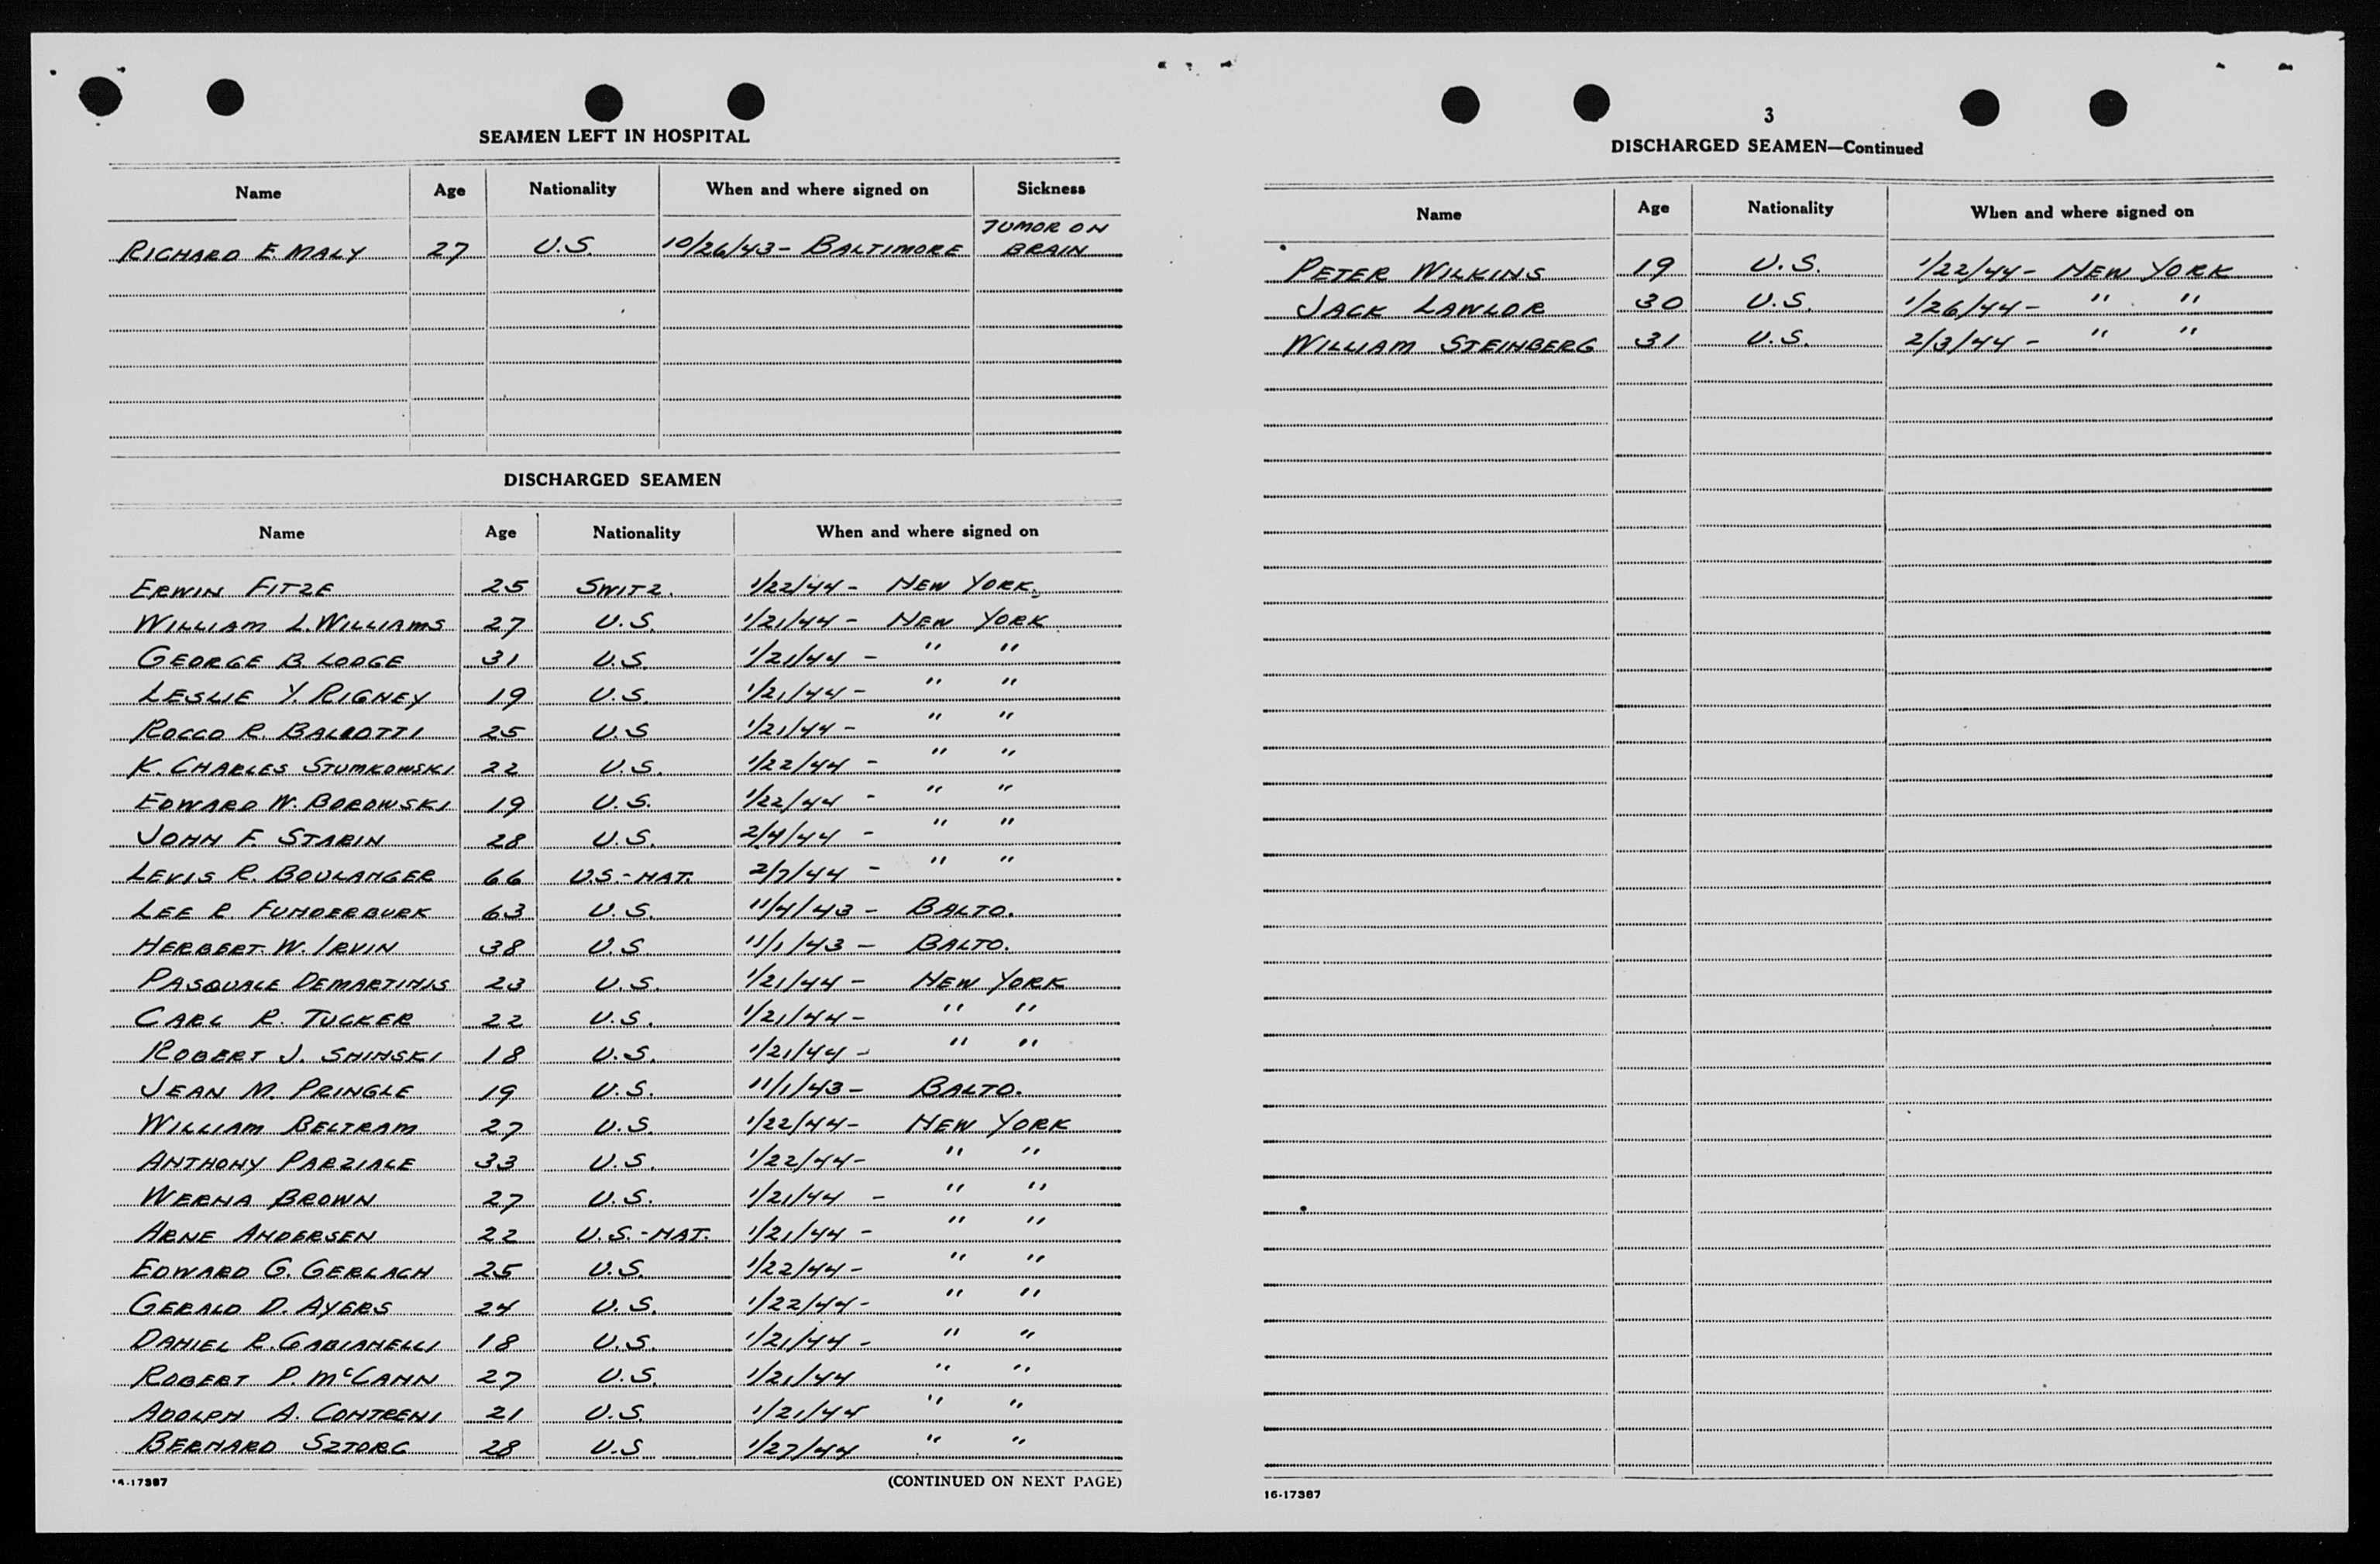 SEAMEN LEFT IN HOSPITAL
Name Age Nationality When and where signed on Sickness
RICHARD E. MALY 27 U.S. 10/26/43 - BALTIMORE TUMOR ON BRAIN
DISCHARGED SEAMEN
Name Age Nationality When and where signed on
ERWIN FITZE 25 SWITZ. 1/22/44 - NEW YORK.
WILLIAM L. WILLIAMS 27 U.S. 1/21/44 - NEW YORK
GEORGE B. LODGE 31 U.S. 1/21/44 - " "
LESLIE Y. RIGNEY 19 U.S. 1/21/44 - " "
ROCCO R. BALDOTTI 25 U.S 1/21/44 - " "
K. CHARLES STUMKOWSKI 22 U.S. 1/22/44 - " "
EDWARD W. BOROWSKI 19 U.S. 1/22/44 - " "
JOHN F. STARIN 28 U.S. 2/4/44 - " "
LEVIS R. BOULANGER 66 U.S.-NAT. 2/7/44 - " "
LEE R. FUNDERBURK 63 U.S. 11/4/43 - BALTO.
HERBERT W. IRVIN 38 U.S. 11/1/43 - BALTO.
PASQUALE DEMARTINIS 23 U.S. 1/21/44 - NEW YORK
CARL R. TUCKER 22 U.S. 1/21/44 - " "
ROBERT J. SHINSKI 18 U.S. 1/21/44 - " "
JEAN M. PRINGLE 19 U.S. 11/1/43 - BALTO.
WILLIAM BELTRAM 27 U.S. 1/22/44 - NEW YORK
ANTHONY PARZIALE 33 U.S. 1/22/44 - " "
WERNA BROWN 27 U.S. 1/21/44 - " "
ARNE ANDERSEN 22 U.S.-NAT. 1/21/44 - " "
EDWARD G. GERLACH 25 U.S. 1/22/44 - " "
GERALD D. AYERS 24 U.S. 1/22/44 - " "
DANIEL R. GABIANELLI 18 U.S. 1/21/44 - " "
ROBERT P. McCANN 27 U.S. 1/21/44 " "
ADOLPH A. CONTRENI 21 U.S. 1/21/44 " "
BERNARD SZTORC 28 U.S 1/27/44 " "
16-17387 (CONTINUED ON NEXT PAGE)
3
DISCHARGED SEAMEN—Continued
Name Age Nationality When and where signed on
PETER WILKINS 19 U.S. 1/22/44 - NEW YORK
JACK LAWLOR 30 U.S. 1/26/44 - " "
WILLIAM STEINBERG 31 U.S. 2/3/44 - " "
16-17387